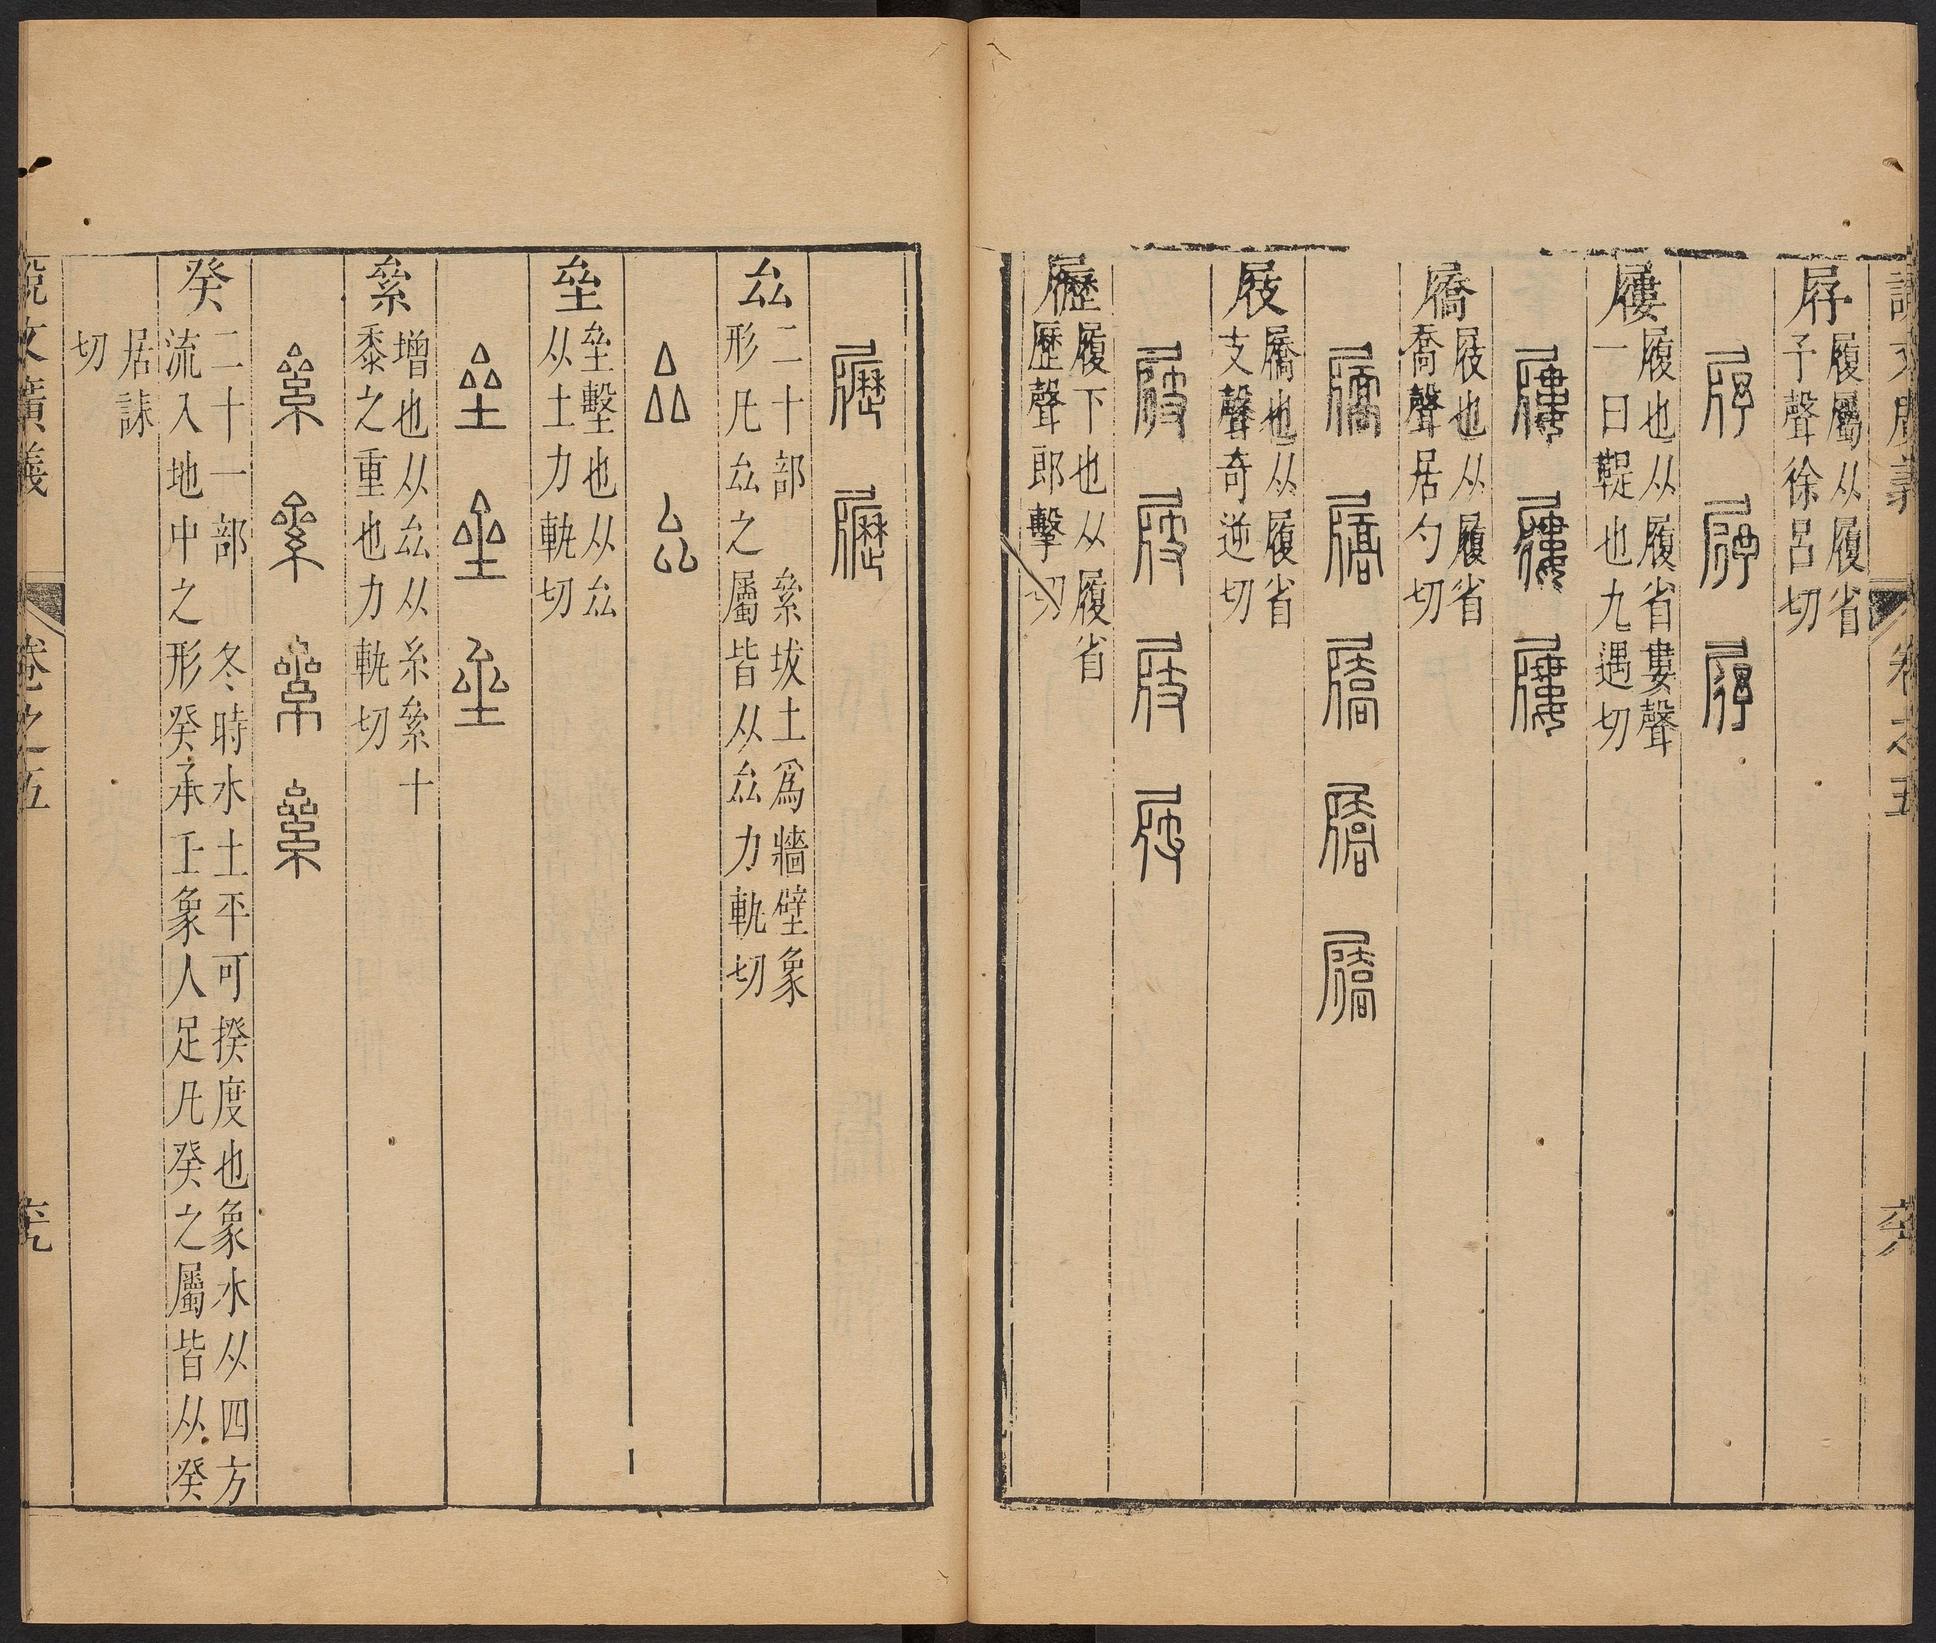 說文廣義
卷之五
𡲰
履屬从履省
予聲徐呂切
屨
履也从履省婁聲
一曰鞮也九遇切
屩
屐也从履省
喬聲居勺切
屐
屩也从履省
支聲奇逆切
𡳐
履下也从履省
歷聲郎擊切
厽
二十部 絫坺土爲牆壁象
形凡厽之屬皆从厽力軌切
垒
垒墼也从厽
从土力軌切
絫
增也从厽从糸絫十
黍之重也力軌切
癸
二十一部 冬時水土平可揆度也象水从四方
流入地中之形癸承壬象人足凡癸之屬皆从癸
居誄
切
說文廣義
卷之五